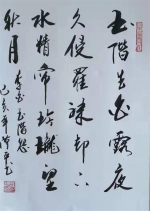 玉階生白露夜
久侵羅襪却下
水精帘玲瓏望
秋月
李白玉階怨
己亥年书